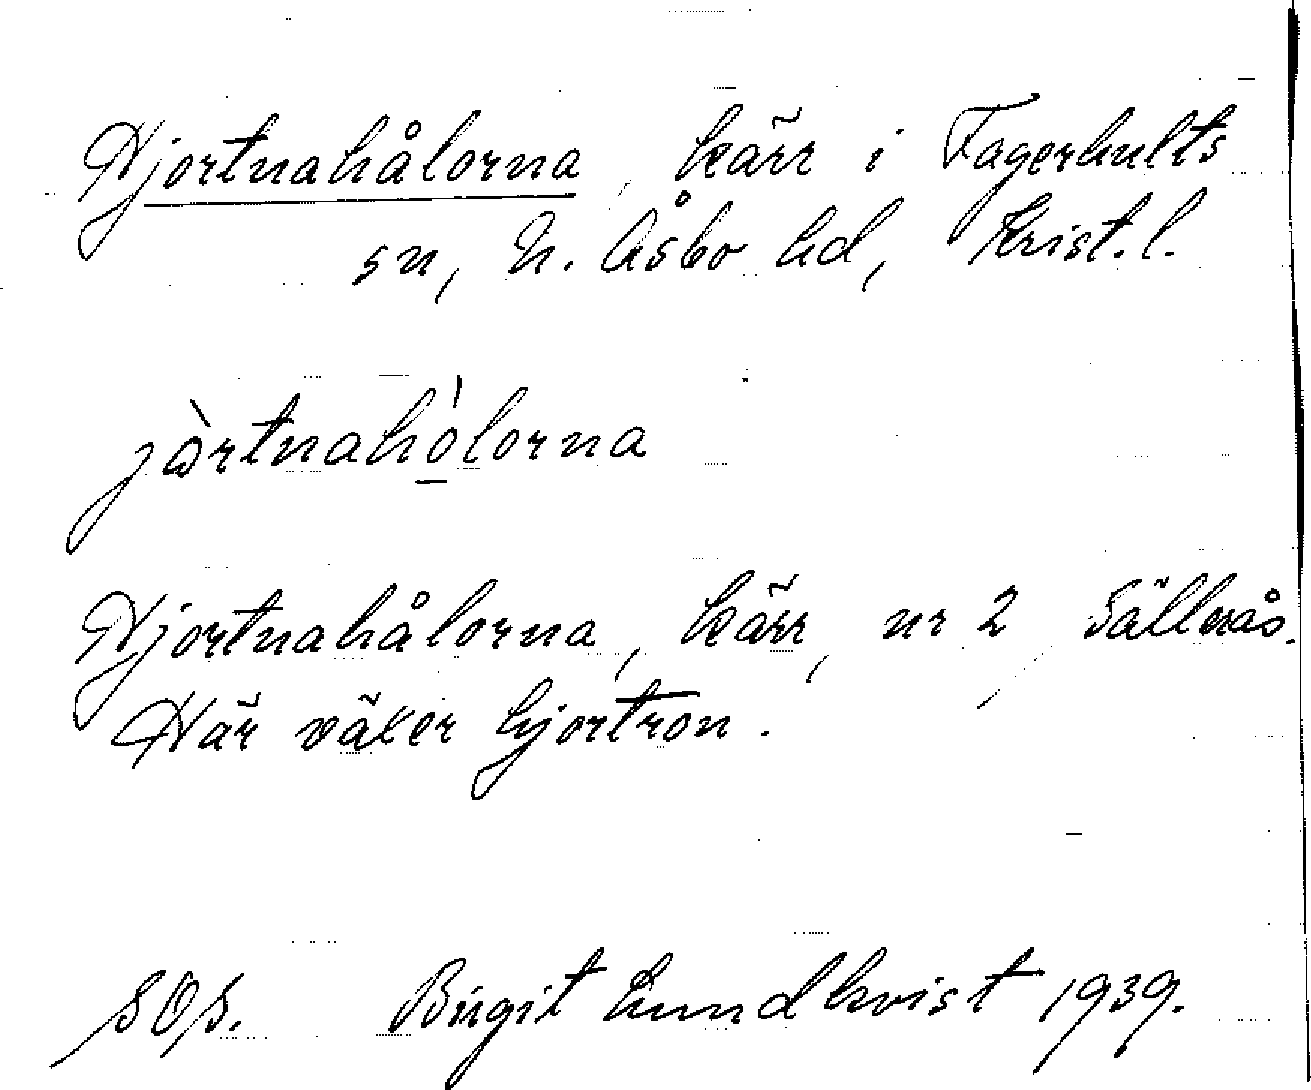 Hjortnahålorna, kärr i Fagerhults
sn, N. Åsbo hd, Krist. l.
jòrtnahólorna
Hjortnahålorna, kärr, nr 2 Sällerås.
Här växer hjortron.
SOS. Birgit Lundkvist 1939.